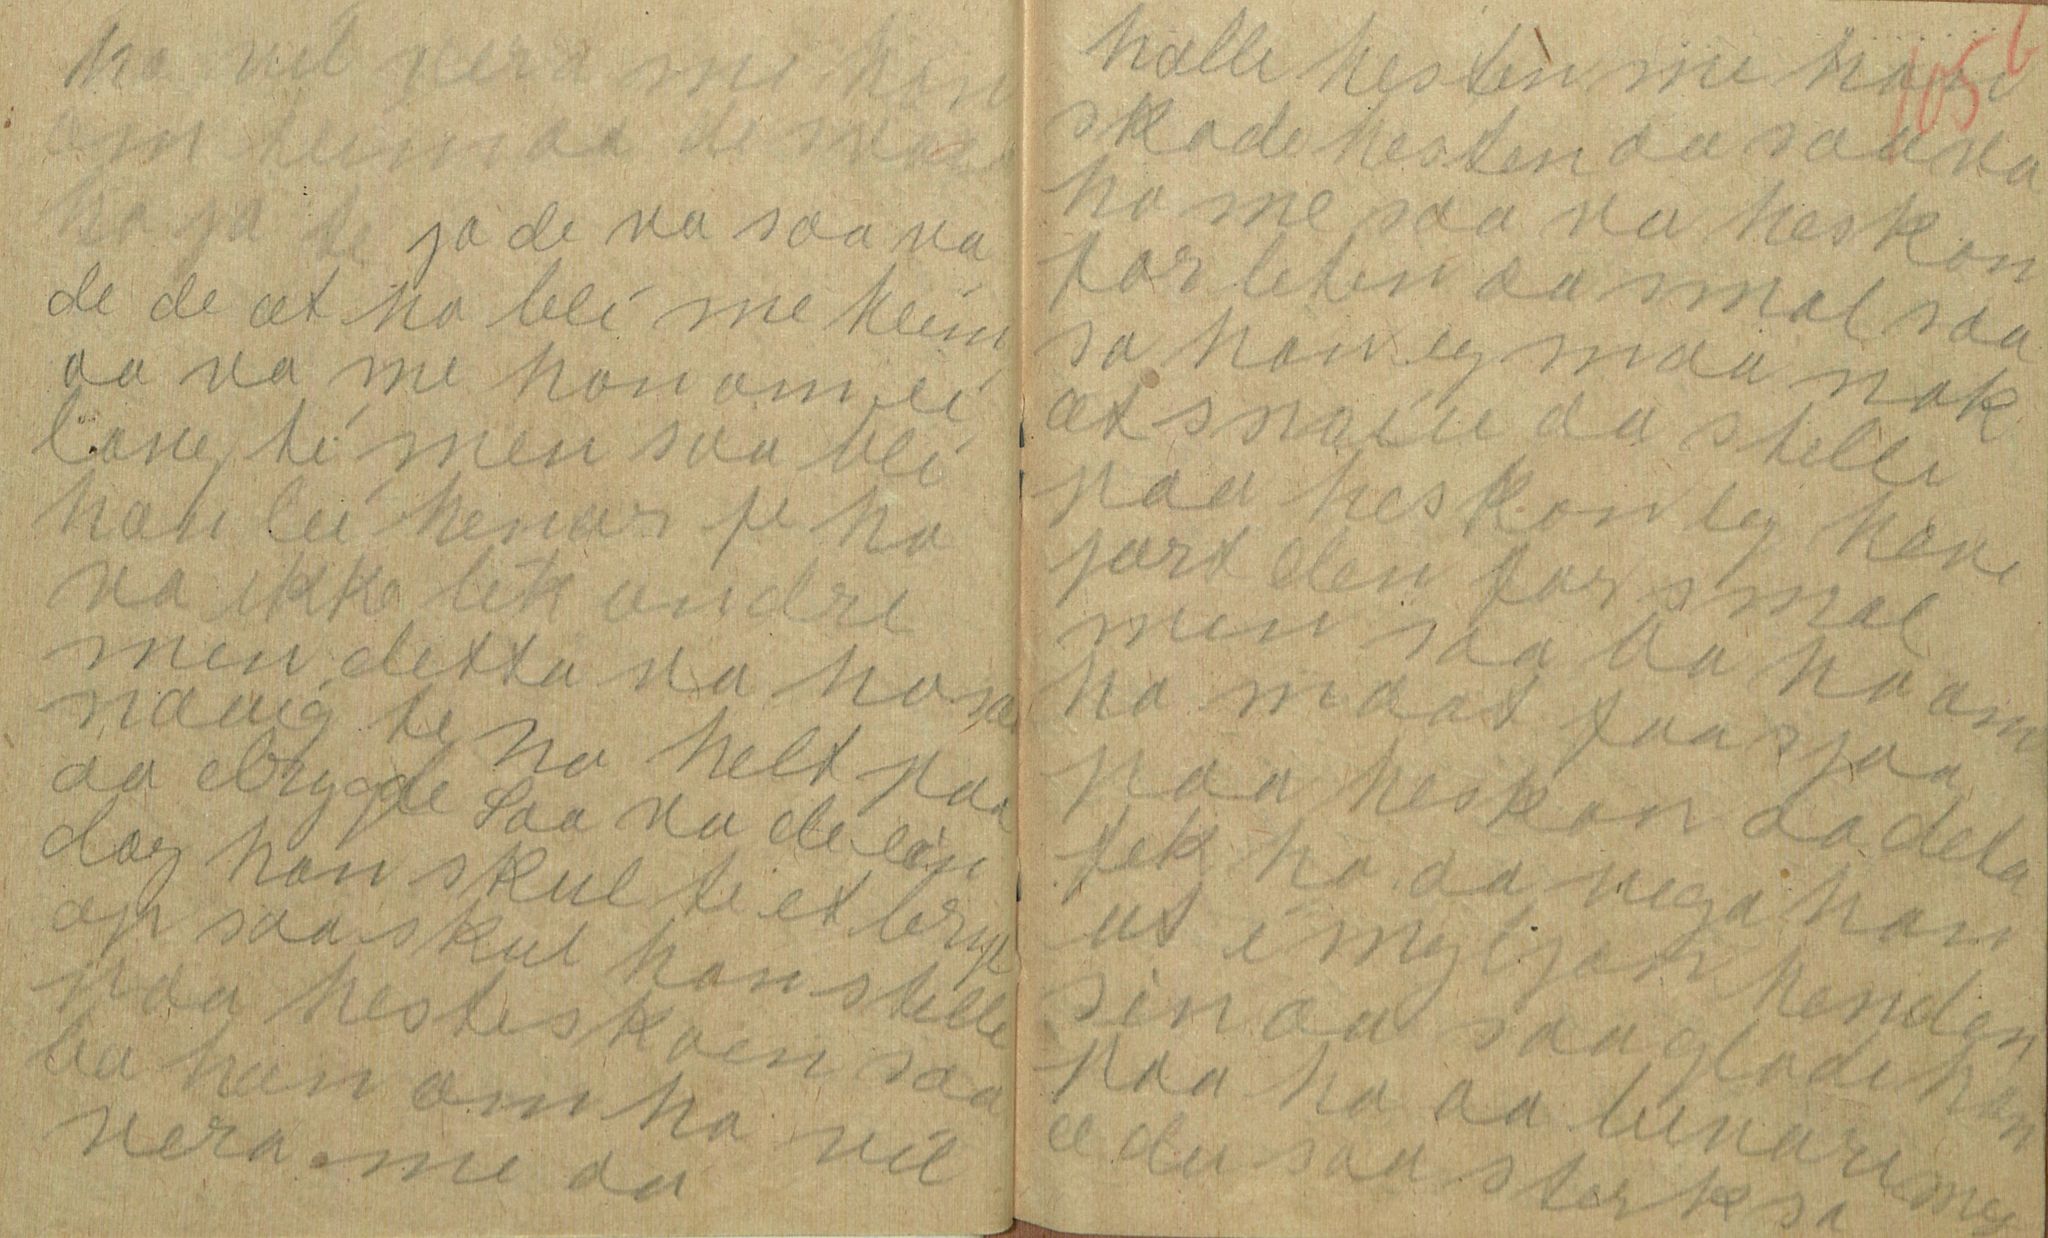 ho vil vera me han
om teimaa de maat
ho ja te ja de va saa va
de de æt ho blei me heim
aa va me honom ei
lang ti men saa blei
han lei henar fe ho
va ikke lik andre
men detta va hona
naaig te ho helt paa
aa brygde Saa va de ein
dag han skul te et bryl
op saa skul han stelle
paa hesteskoen saa
ba han om ho vil
vera me aa
halle hesten me han
skode hesten aa saa va
ho me saa va heskon
for liten aa smal saa
sa han eg maa nok
æt snaiu aa stelle
paa heskon eg heve
jort den for smal
men saa ba ho om
ho maat faa sjaa
paa heskon aa deta
fek ho aa vega han
ut i myljom henden
sin aa saa glade han
paa ho aa linare meg
æ du saa sterk sa
105 b